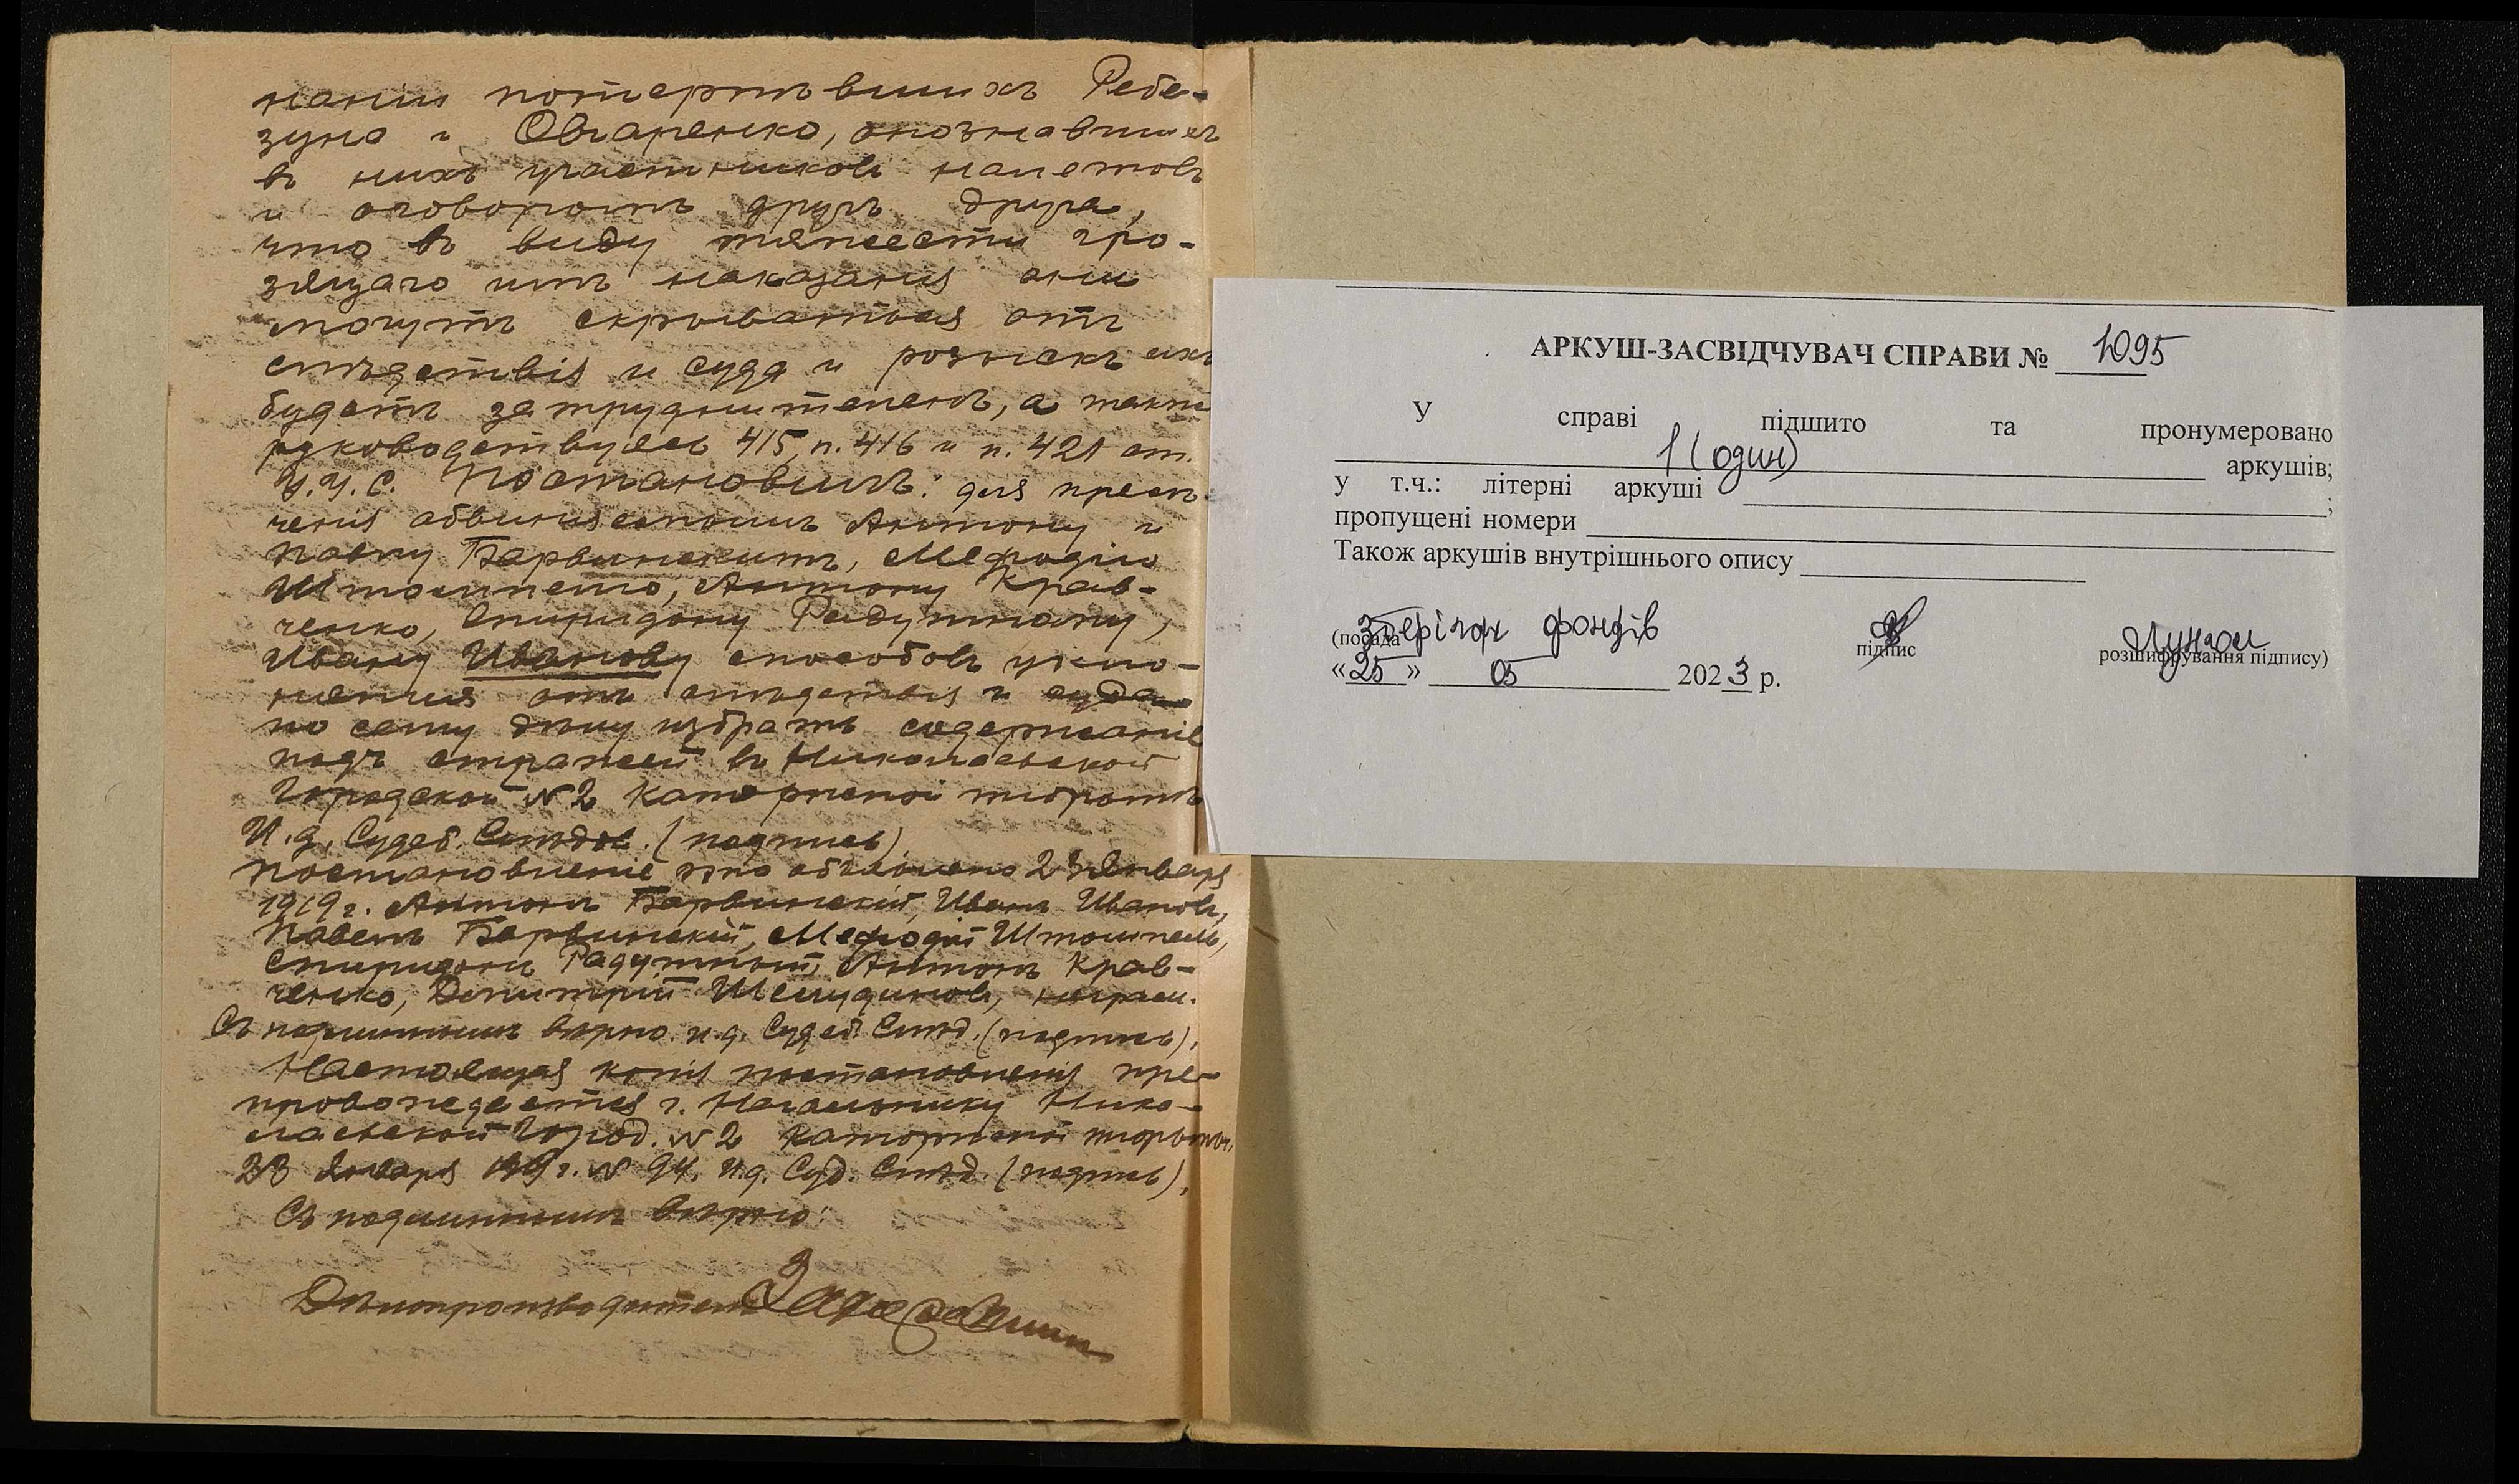 нанiи потерпѣвшихъ Ребе-
зуна и Овчаренко, опознавшихъ
въ нихъ участниковъ налетовъ
и оговоромъ другъ друга,
что въ виду тяжести гро-
зящаго имъ наказанiя они
могутъ скрываться отъ
слѣдствiя и суда и розыскъ ихъ
будетъ затруднителенъ, а также
руководствуясь 415, п. 416 и п. 421 ст.
У.У.С. Постановилъ: для пресѣ-
ченiя обвиняемымъ Антону и
Павлу Барвинскимъ, Мефодiю
Штомпелю, Антону Крав-
ченко, Спиридону Радутному,
Ивану Иванову способовъ укло-
ненiя отъ слѣдствiя и суда
по сему дѣлу избрать содержанiе
подъ стражей въ Николаевской
Городской № 2 каторжной тюрьмѣ
И.д. Судеб. Слѣдов. (подпись).
Постановленiе это объявлено 23 Января
1919 г. Антонъ Барвинскiй, Иванъ Ивановъ,
Павелъ Барвинскiй, Мефодiй Штомпель,
Спиридонъ Радутный, Антонъ Крав-
ченко, Дмитрiй Шемудиновъ,
Съ подлиннымъ вѣрно: и.д. Судеб. Слѣд. (подпись).
Настоящая копiя постановленiя пре-
провождается г. Начальнику Нико-
лаевской Город. № 2 каторжной тюрьмы.
23 Января 1919 г. № 94. И.д. Суд. Слѣд. (подпись).
Съ подлиннымъ вѣрно:
Дѣлопроизводитель
АРКУШ-ЗАСВІДЧУВАЧ СПРАВИ № 1095
У справі підшито та пронумеровано
1 (один) аркушів;
у т.ч.: літерні аркуші ;
пропущені номери
Також аркушів внутрішнього опису
зберігач фондів
(посада підпис розшифрування підпису)
«25» 05 2023 р.